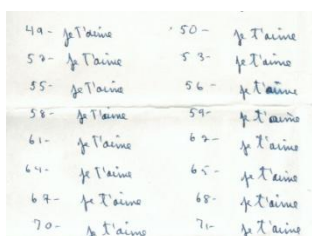 49- je t'aime 50- je t'aime
52- je t'aime 53- je t'aime
55- je t'aime 56- je t'aime
58- je t'aime 59- je t'aime
61- je t'aime 62- je t'aime
64- je t'aime 65- je t'aime
67- je t'aime 68- je t'aime
70- je t'aime 71- je t'aime